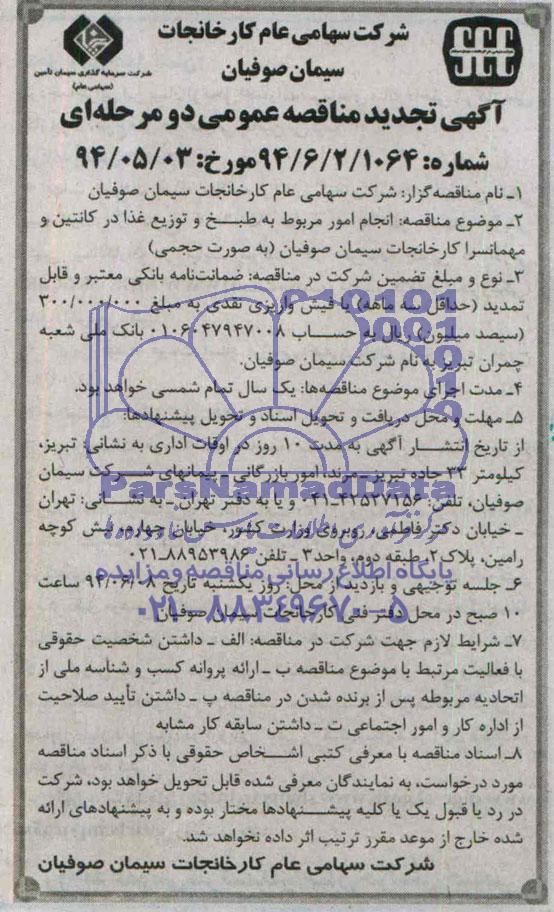 شرکت سهامی عام کارخانجات
سیمان صوفیان
شرکت سرمایه گذاری سیمان تأمین
(سهامی عام)
آگهی تجدید مناقصه عمومی دو مرحله‌ای
شماره: ۹۴/۶/۲/۱۰۶۴ مورخ: ۹۴/۰۵/۰۳
۱ـ نام مناقصه‌گزار: شرکت سهامی عام کارخانجات سیمان صوفیان
۲ـ موضوع مناقصه: انجام امور مربوط به طبخ و توزیع غذا در کانتین و
مهمانسرا کارخانجات سیمان صوفیان (به صورت حجمی)
۳ـ نوع و مبلغ تضمین شرکت در مناقصه: ضمانت‌نامه بانکی معتبر و قابل
تمدید (حداقل سه ماهه) یا فیش واریزی نقدی به مبلغ ۳۰۰/۰۰۰/۰۰۰
(سیصد میلیون) ریال به حساب ۰۱۰۶۰۴۷۹۴۷۰۰۸ بانک ملی شعبه
چمران تبریز به نام شرکت سیمان صوفیان.
۴ـ مدت اجرای موضوع مناقصه‌ها: یک سال تمام شمسی خواهد بود.
۵ـ مهلت و محل دریافت و تحویل اسناد و تحویل پیشنهادها:
از تاریخ انتشار آگهی به مدت ۱۰ روز در اوقات اداری به نشانی: تبریز،
کیلومتر ۳۳ جاده تبریز ـ مرند، امور بازرگانی ـ پیمانهای شرکت سیمان
صوفیان، تلفن: ۴۲۵۲۷۱۵۶ـ۰۴۱ و یا به دفتر تهران ـ به نشانی: تهران
ـ خیابان دکتر فاطمی، روبروی وزارت کشور، خیابان چهارم، نبش کوچه
رامین، پلاک ۲، طبقه دوم، واحد ۳ ـ تلفن ۸۸۹۵۳۹۸۶ـ۰۲۱
۶ـ جلسه توجیهی و بازدید از محل: روز یکشنبه تاریخ ۹۴/۰۶/۰۸ ساعت
۱۰ صبح در محل دفتر فنی کارخانجات سیمان صوفیان
۷ـ شرایط لازم جهت شرکت در مناقصه: الف ـ داشتن شخصیت حقوقی
با فعالیت مرتبط با موضوع مناقصه ب ـ ارائه پروانه کسب و شناسه ملی از
اتحادیه مربوطه پس از برنده شدن در مناقصه پ ـ داشتن تأیید صلاحیت
از اداره کار و امور اجتماعی ت ـ داشتن سابقه کار مشابه
۸ـ اسناد مناقصه با معرفی کتبی اشخاص حقوقی با ذکر اسناد مناقصه
مورد درخواست، به نمایندگان معرفی شده قابل تحویل خواهد بود، شرکت
در رد یا قبول یک یا کلیه پیشنهادها مختار بوده و به پیشنهادهای ارائه
شده خارج از موعد مقرر ترتیب اثر داده نخواهد شد.
شرکت سهامی عام کارخانجات سیمان صوفیان
ParsNamadData
پایگاه اطلاع رسانی مناقصه و مزایده
۰۲۱-۸۸۳۴۹۶۷۰-۵